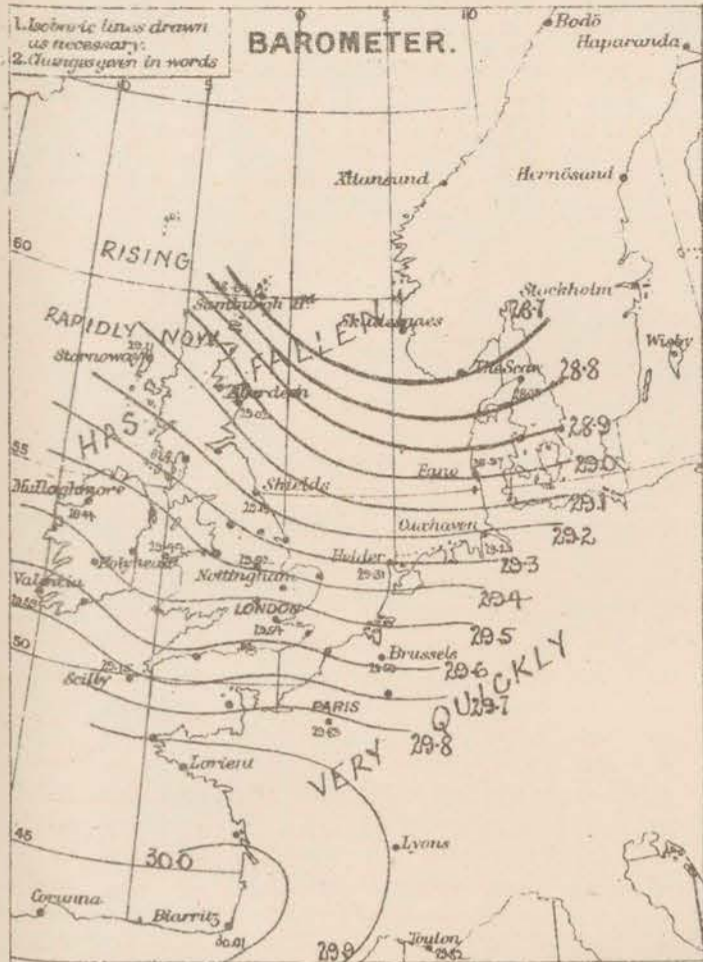 1. Isobaric lines drawn
as necessary.
2. Changes given in words
BAROMETER.
0
5
5
10
Bodö
Haparanda
Xtiansund
Hernösand
60
RISING
Sumburgh Hd.
Skudesnaes
Stockholm
28.7
RAPIDLY NOW
FALLEN
Wisby
Stornoway
The Scaw
28.8
Aberdeen
28.9
HAS
55
Fanö
29.0
Mullaghmore
Shields
29.1
Cuxhaven
29.2
Holyhead
Helder
29.3
Valencia
Nottingham
29.4
LONDON
29.5
50
Brussels
29.6
Scilly
29.7
QUICKLY
PARIS
29.8
VERY
Lorient
45
30.0
Lyons
Corunna
Biarritz
30.01
29.9
Toulon
29.82